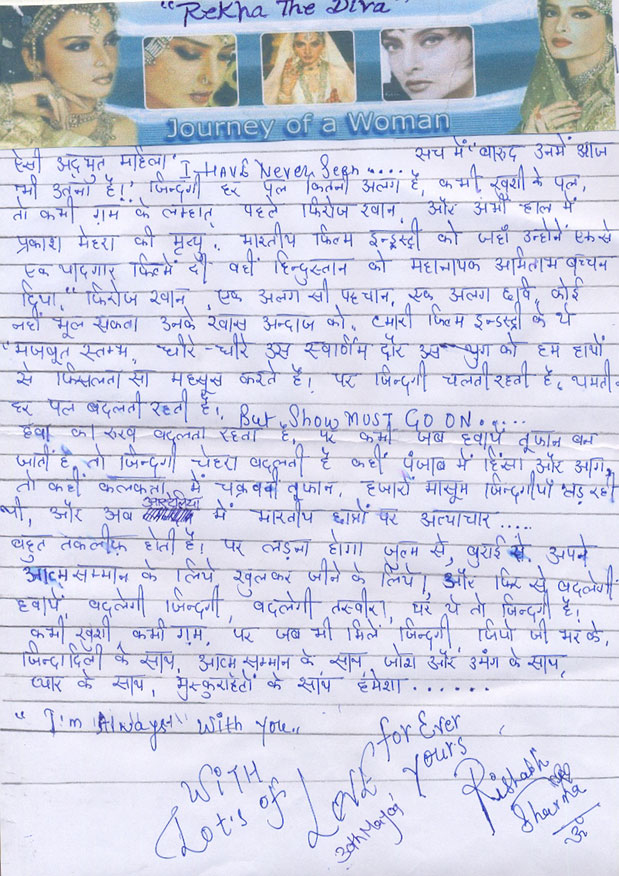 "Rekha The Diva"
Journey of a Woman
ऐसी अद्भुत महिला I Have Never Seen..... सच में "बारुद उनमें आज
भी उतना है!" जिन्दगी हर पल कितनी अलग है, कभी खुशी के पल,
तो कभी ग़म के लम्हात, पहले फिरोज खान, और अभी हाल में
प्रकाश मेहरा की मृत्यु. भारतीय फिल्म इन्डस्ट्री को जहाँ उन्होनें एक से
एक यादगार फिल्में दी वहीं हिन्दुस्तान को महानायक अमिताभ बच्चन
दिया." फिरोज खान, एक अलग सी पहचान, एक अलग छवि, कोई
नहीं भूल सकता उनके खास अन्दाज को. हमारी फिल्म इन्डस्ट्री के ये
"मजबूत स्तम्भ. धीरे-धीरे उस स्वार्णिम दौर उस युग को हम हाथों
से फिसलता सा महसूस करते हैं! पर जिन्दगी चलती रहती है, थमती न
हर पल बदलती रहती है!. But Show MUST GO ON.....
हवा का रुख बदलता रहता है. पर कभी जब हवायें तूफान बन
जाती है तो जिन्दगी चेहरा बदलती है कहीं पंजाब में हिंसा और आग,
तो कहीं कलकत्ता में चक्रवर्ती तूफान. हजारों मासूम जिन्दगीयाँ लड़ रही
थी, और अब में भारतीय छात्रों पर अत्याचार.....
बहुत तकलीफ़ होती है! पर लड़ना होगा जुल्म से, बुराई से अपने
आत्मसम्मान के लिये खुलकर जीने के लिये!, और फिर से बदलेगी
हवायें बदलेगी जिन्दगी, बदलेगी तस्वीर!, पर ये तो जिन्दगी है!
कभी खुशी कभी ग़म. पर जब भी मिले जिन्दगी, जियो जी भर के.
जिन्दादिली के साथ, आत्मसम्मान के साथ जोश और उमंग के साथ,
प्यार के साथ, मुस्कुराहटों के साथ हंमेशा......
"I'm Always" With You..
WITH Lot's of Love For Ever Yours
Rishabh Sharma
ॐ